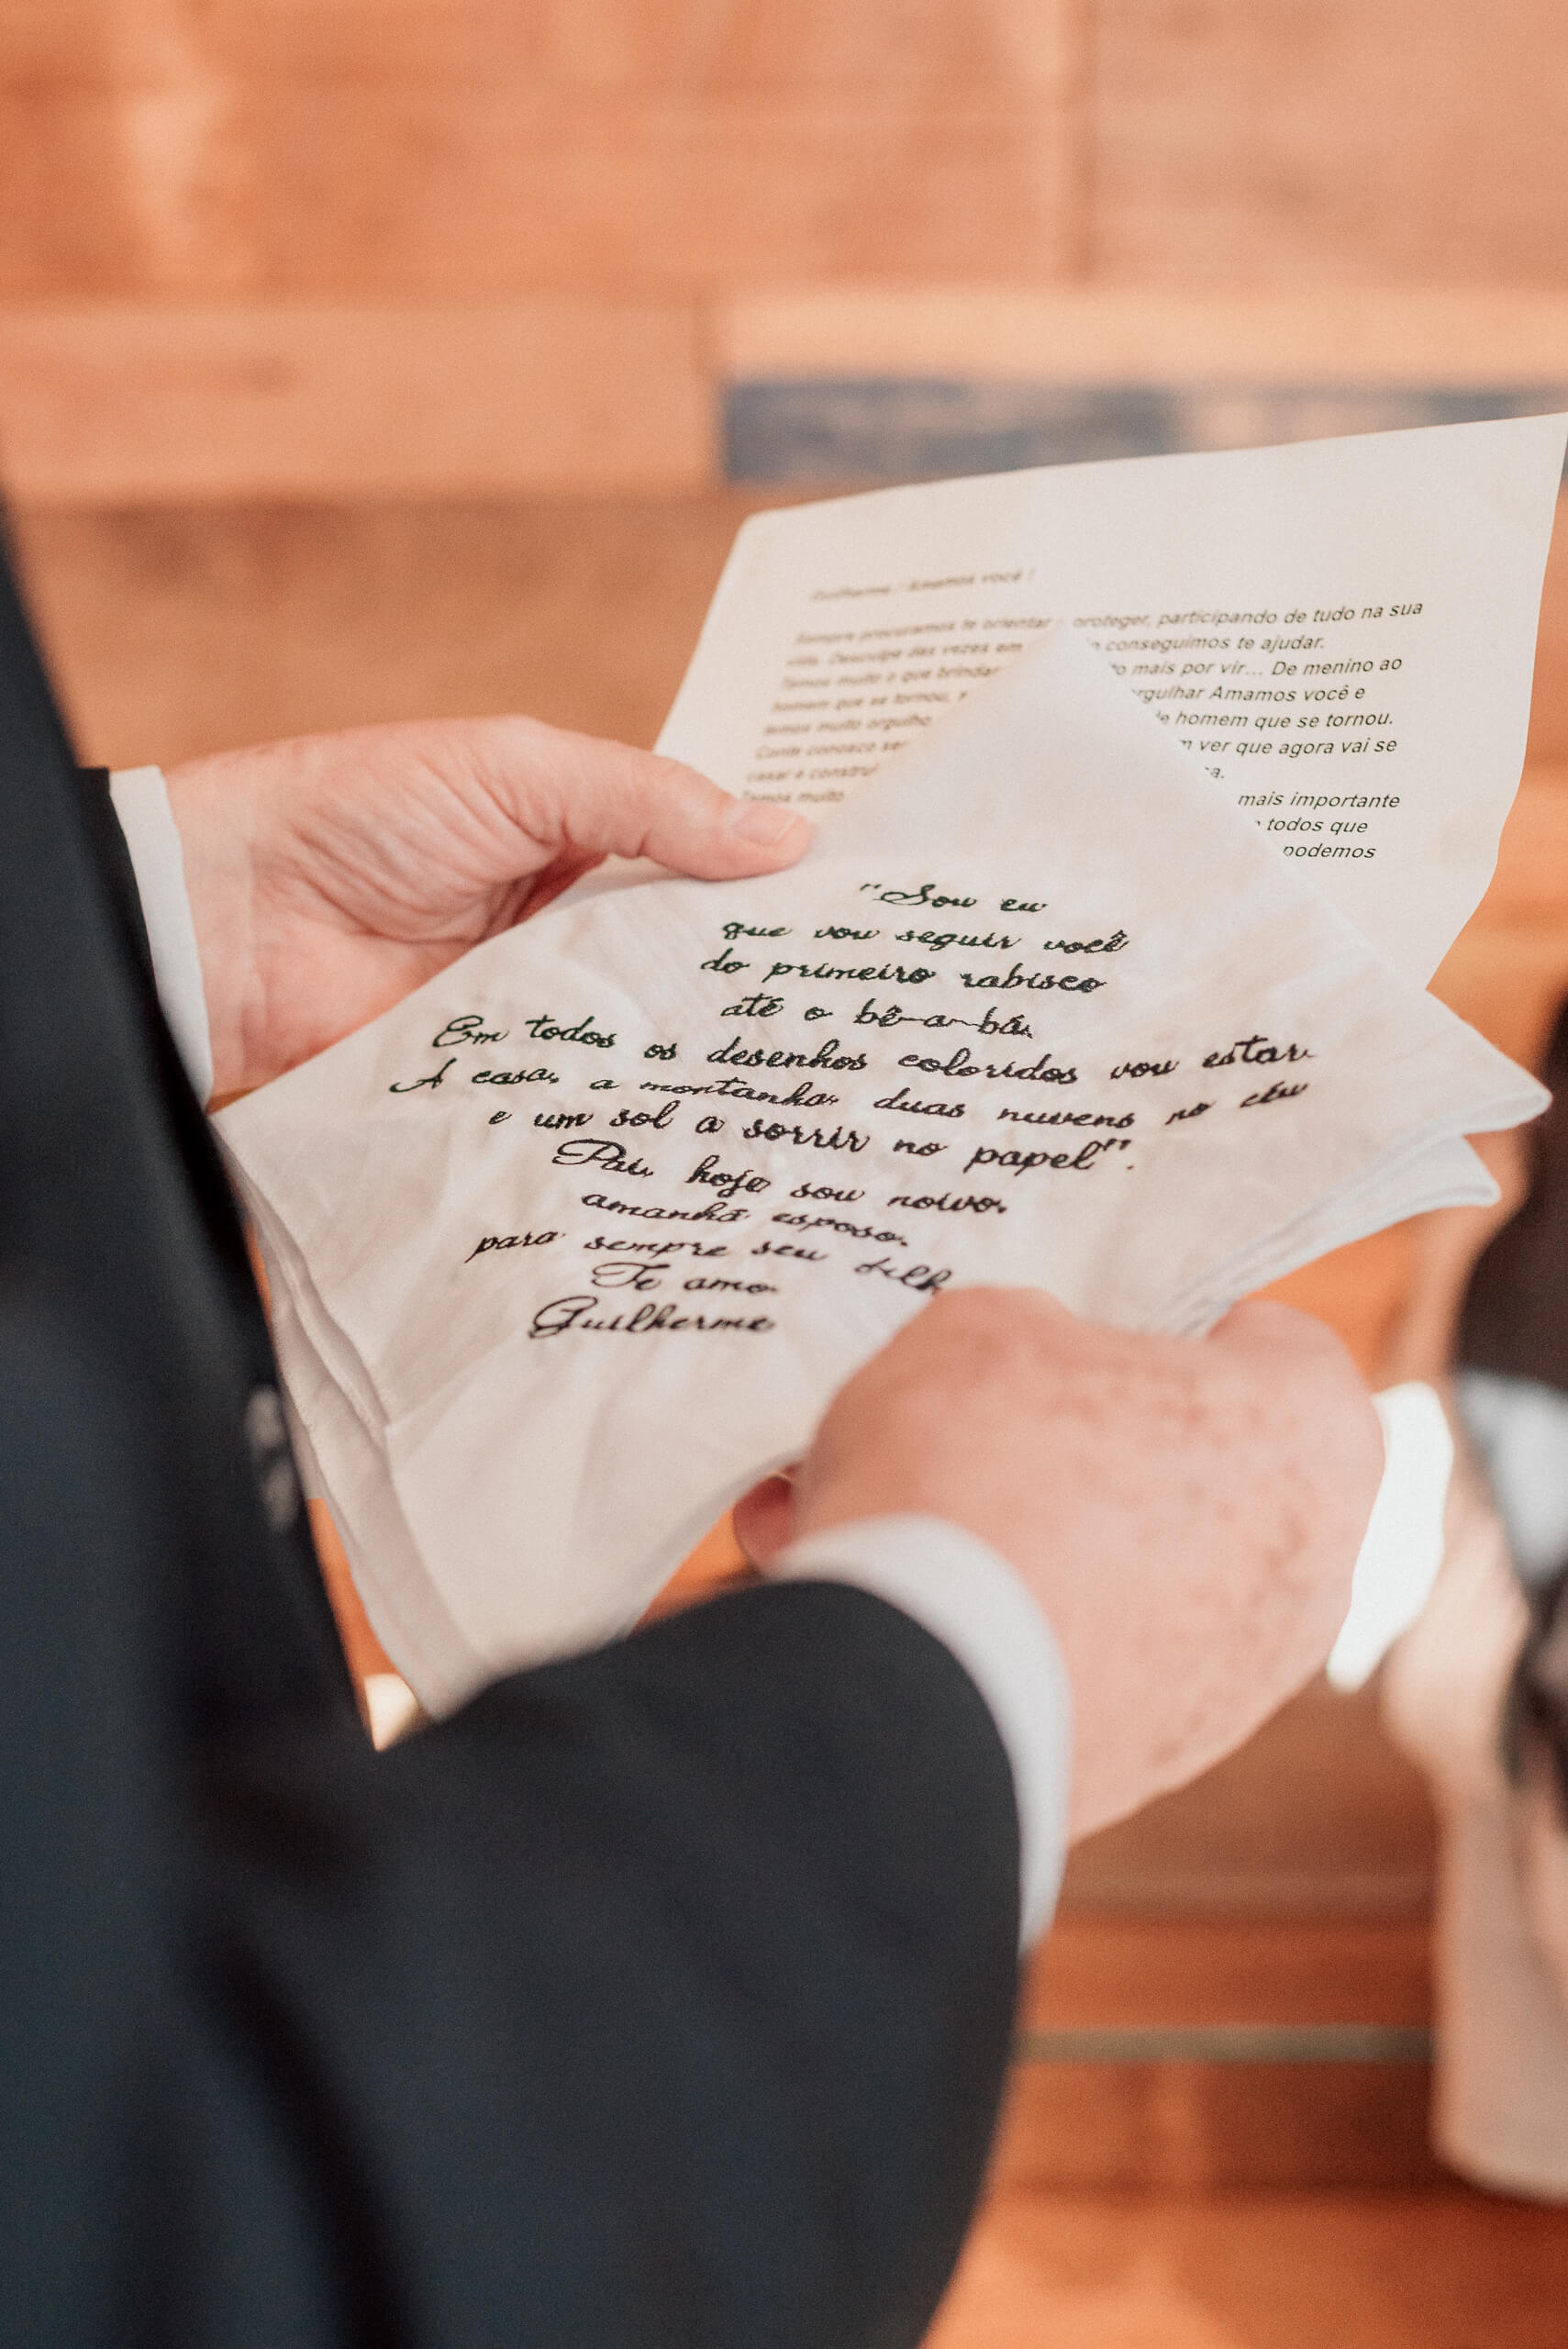 Guilherme ! Amamos você !
Sempre procuramos te orientar proteger, participando de tudo na sua
vida. Desculpe das vezes em conseguimos te ajudar.
Temos muito o que brindar mais por vir... De menino ao
homem que se tornou, rgulhar Amamos você e
temos muito orgulho homem que se tornou.
Conte conosco ver que agora vai se
casar e
Temos muito mais importante
todos que
podemos
"Sou eu
que vou seguir você
do primeiro rabisco
até o bê-a-bá.
Em todos os desenhos coloridos vou estar.
A casa, a montanha, duas nuvens no céu
e um sol a sorrir no papel".
Pai, hoje sou noivo,
amanhã esposo,
para sempre seu filh
Te amo
Guilherme